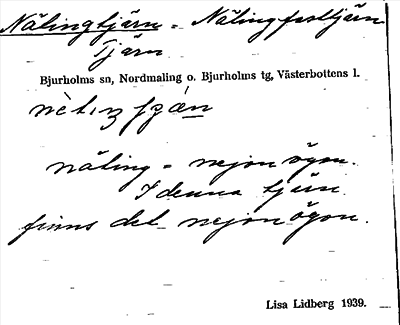 Nätingtjärn = Nätingfrottjärn
Tjärn
Bjurholms sn, Nordmaling o. Bjurholms tg, Västerbottens l.
näting = nejonögon.
I denna tjärn
finns det nejonögon.
Lisa Lidberg 1939.